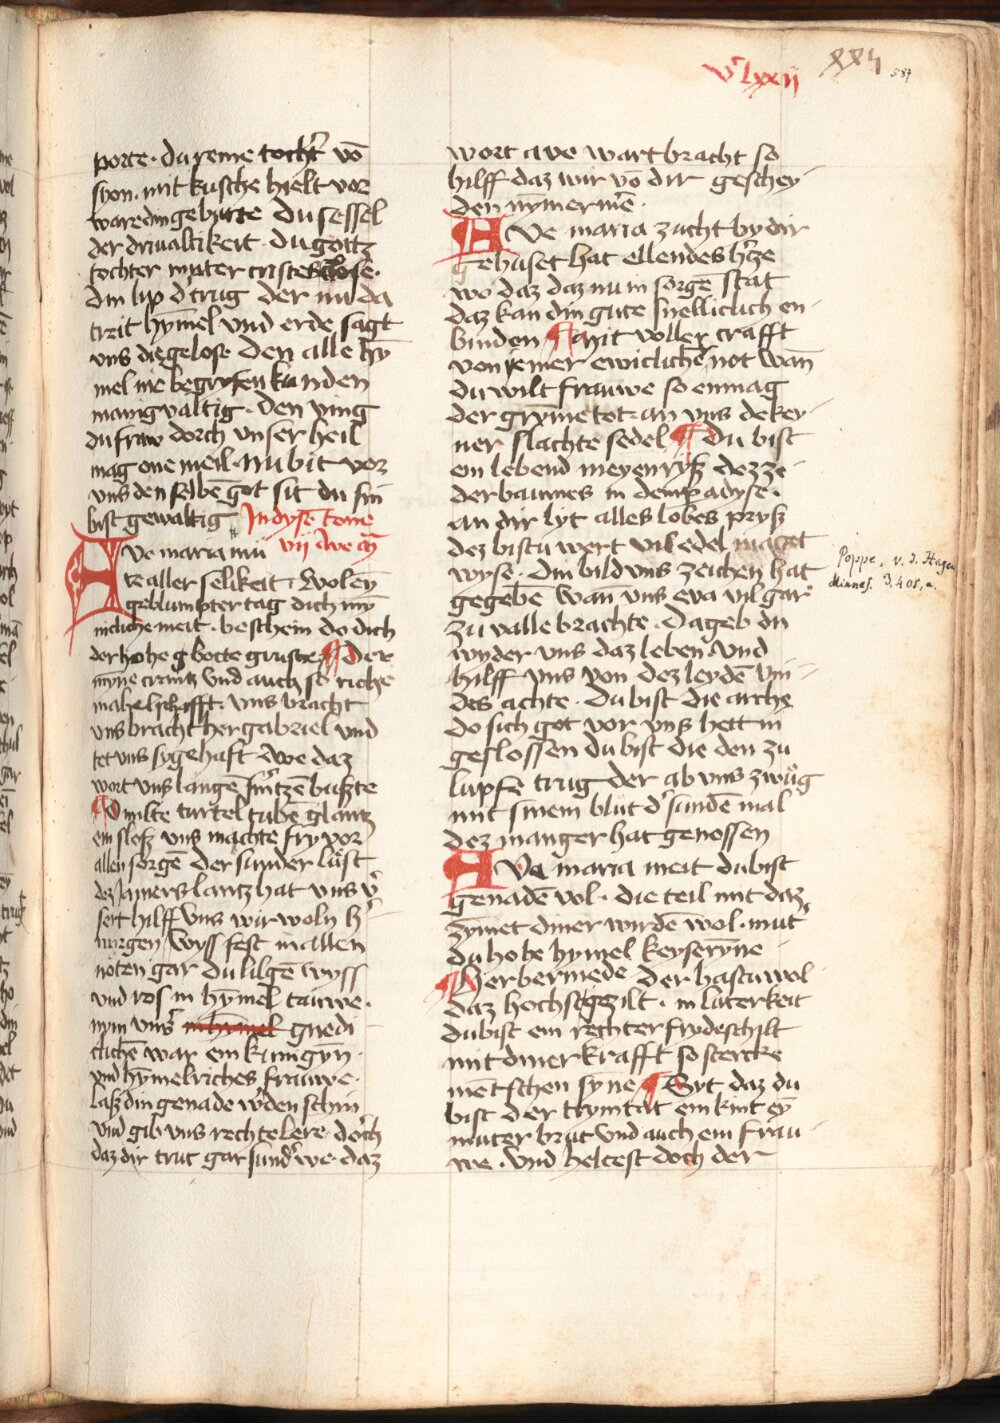 vͦ lxxij xxij 587
porte · du reine tochtˀ vō
syon · mit kusche hielt vor
ware din geburte du sessel
der driualtikeit · du gottz
tochter muter cristes close ·
din lip dˀ trug der nu da
treit hȳmel vnd erde sagt
vns die gelose den alle hȳ
mel nie begryfen kunden
manigvaltig · den ving
du fraw dorch vnser heil
mag one meil · Nu bit vor
vns den selbē got sit du sin
bist gewaltig Jn dysē tone
vij Ave m̄
AVe maria mu
ter aller selikeit · Wolen
geblumpter tag dich my̅
nicliche meit · beschein do dich
der hohe gbotte gruste ¶ Der
myne crantz vnd auch so riche
mahelschafft · vns bracht
vns bracht her gabriel vnd
tet vns sygehaft · Awe daz
wort vns langē smˀtzē bußte
¶ Dmilte turtel tubē glantz
ein sloß vns machte fry vor
allen sorgē der sunder lust
dez Jamers lantz hat vns vˀ
sert hilff vns wir woln hˀ
nurgen Wyss fest in allen
nöten gar du lilgē wyss
vnd ros in hȳmel tauwe ·
nym vnsˀ in hȳmel gnedi
clichē war ein kunigyn ·
vnd hȳmelriches frauwe ·
laß din genade wˀden schin
vnd gib vns rechte lere doch
daz dir trut gar sundˀ we daz
wort ave wart bracht so
hilff daz wir vō dir geschey
den nȳmermē ·
AVe maria zucht by dir
gehuset hat ellendes hˀze
wo daz daz nu in sorgē stat
daz kan din gute snelliclich en
binden ¶ mit voller crafft
von iemer ewiclichē not wan̄
du wilt frauwe so enmag
der grȳme tot · an vns dekey
ner slachte sedel ¶ Du bist
ein lebend meyen ryß dez ze
derbaumes in dem padyse ·
an dir lyt alles lobes pryß
dez bistu wert vil edel maget
wyse · Din bild vns zeichen hat
gegebē wan̄ vns eva vil gar
zu valle brachte · Da geb du
wyder vns daz leben · vnd
hilff vns von dez leydē vin
des achte · du bist die arche
do sich got vor vns hett in
geslossen du bist die den zu
lupfe trug der ab vns zwug
mit sinem blut dˀ sundē mal
dez manger hat genossen
AVe maria meit du bist
genadē vol · die teil mit daz
zȳmet diner wirdē wol · mutˀ
du hohe hymel keyserȳne
¶ Derbermede der hastu wol
daz hochst gezilt · in luterkeit
du bist ein rechter frydeschilt
mit diner krafft so stercke
mētschen syne ¶ Syt daz du
bist der trynitat ein kint ey̅
muter brut vnd auch ein frau
we · vnd heltest doch der
Poppe, v. d. Hagen
Minnes. 3.405,a.